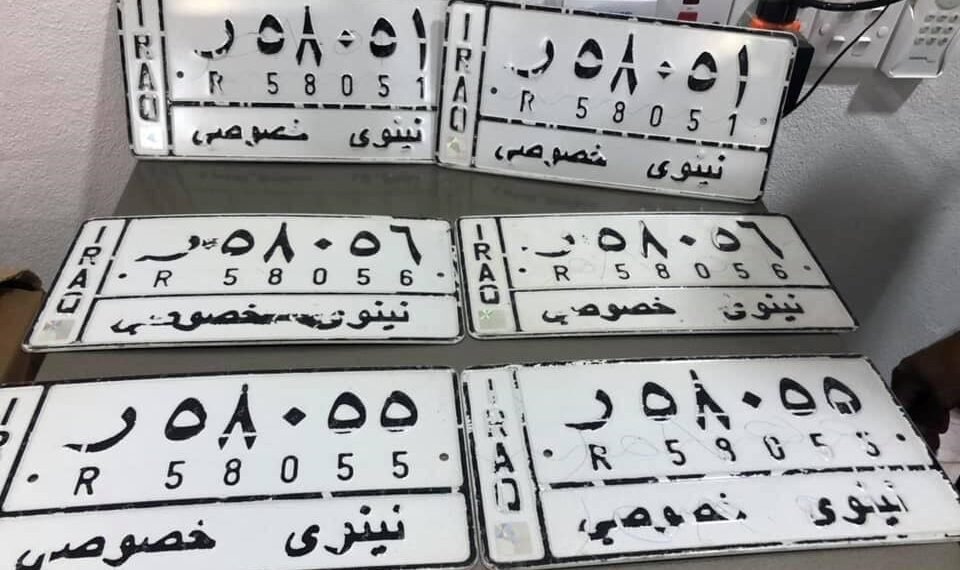 IRAQ
٥٨٠٥١ ر
R 58051
نينوى خصوصي
IRAQ
٥٨٠٥١ ر
R 58051
نينوى خصوصي
IRAQ
٥٨٠٥٦ ر
R 58056
نينوى خصوصي
IRAQ
٥٨٠٥٦ ر
R 58056
نينوى خصوصي
IR
٥٨٠٥٥ ر
R 58055
نينوى خصوصي
IRAQ
٥٨٠٥٥ ر
R 58055
نينوى خصوصي